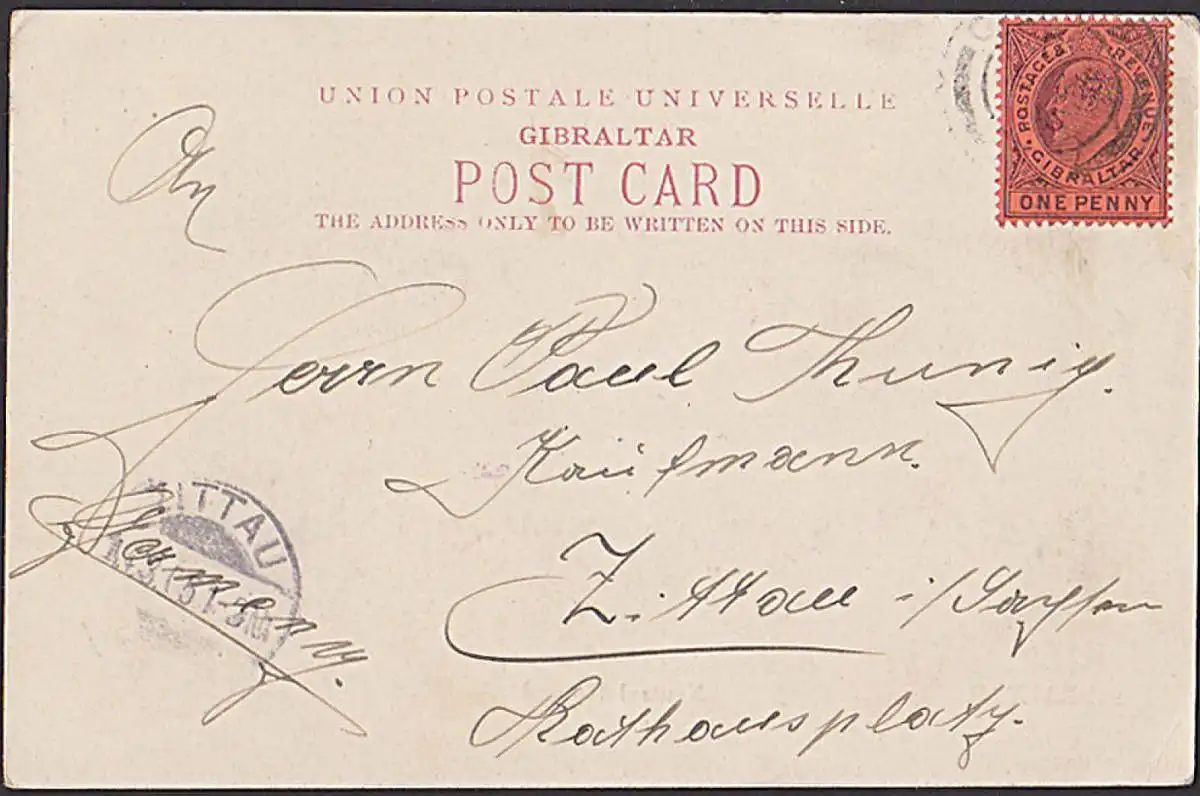 UNION POSTALE UNIVERSELLE
GIBRALTAR
POST CARD
THE ADDRESS ONLY TO BE WRITTEN ON THIS SIDE.
POSTAGE & REVENUE
GIBRALTAR
ONE PENNY
An
Herrn Paul Thunig.
Kaufmann.
Zittau i/Sachsen
Rathausplatz.
Germany.
ZITTAU